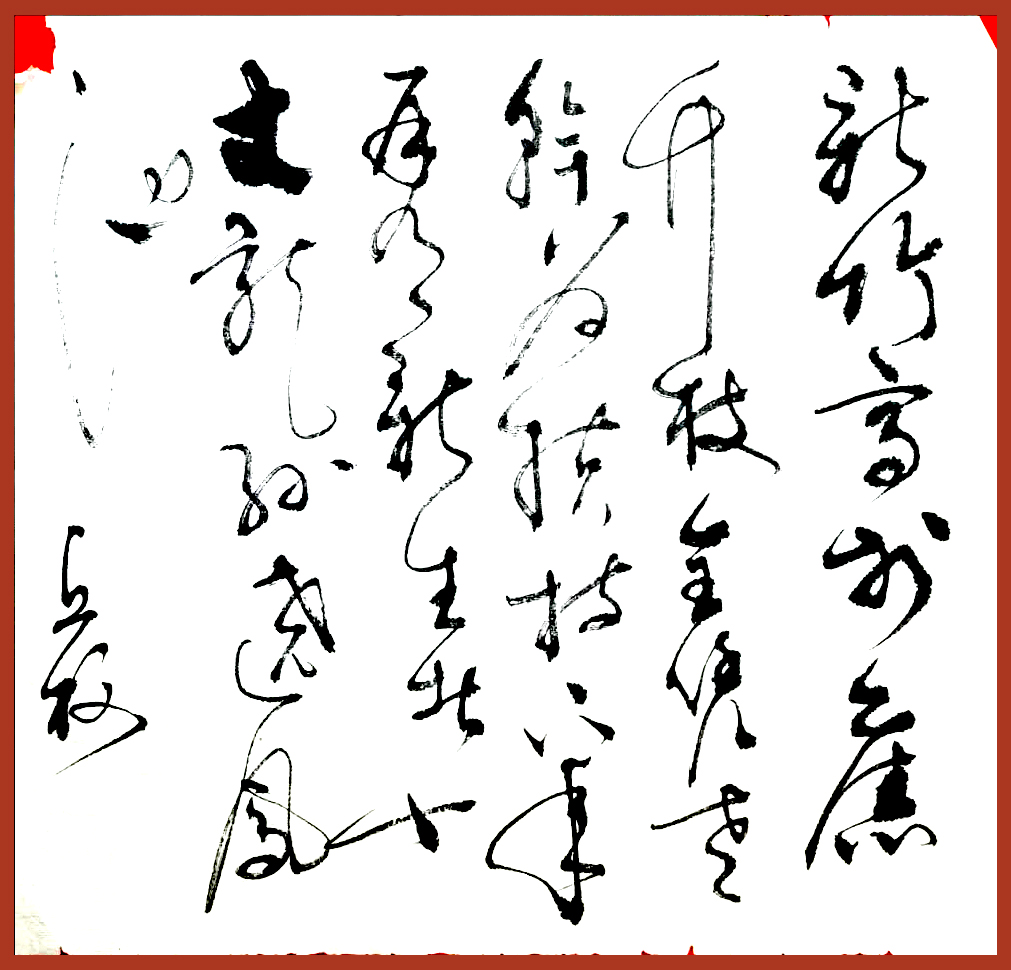 新竹高於舊
竹枝全凭老
幹为扶持下年
再有新生此十
丈龍孫遶鳳
池